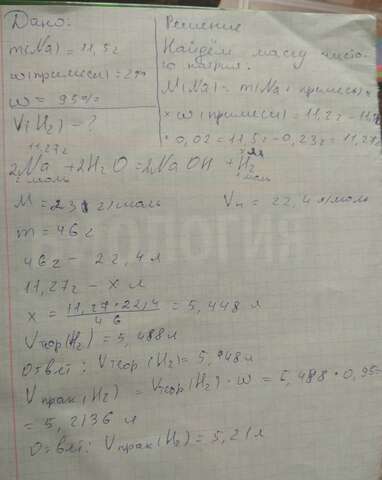 Дано:
m(Na) = 11,5 г
w(примеси) = 2%
w = 95%
V(H₂) - ?
Решение
Найдём массу чисто-
го натрия.
M(Na) = m(Na + примеси) -
× w(примеси) = 11,2г -
· 0,02 = 11,5г - 0,23г = 11,27г
11,27г x л
2Na + 2H₂O = 2NaOH + H₂
2 моль 1 моль
M = 23 г/моль Vm = 22,4 л/моль
m = 46 г
46 г - 22,4 л
11,27г - x л
x = 11,27 * 22,4 / 46 = 5,448 л
Vтеор(H₂) = 5,488 л
Ответ: Vтеор(H₂) = 5,948 л
Vпрак(H₂) = Vтеор(H₂) · w = 5,488 · 0,95
= 5,2136 л
Ответ: Vпрак(H₂) = 5,21 л